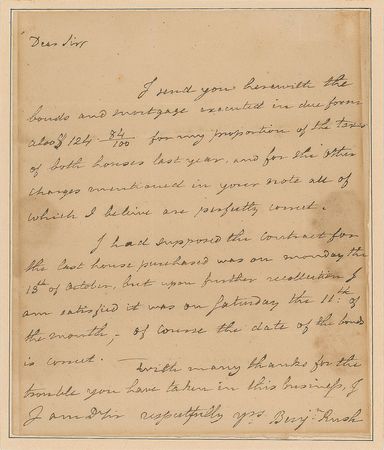 Dear Sir
I send you herewith the
bonds and mortgage executed in due form
also $ 124 84/100 for my proportion of the taxes
of both houses last year, and for the other
charges mentioned in your note all of
which I believe are perfectly correct.
I had supposed the contract for
the last house purchased was on monday the
13th of October, but upon further recollection I
am satisfied it was on Saturday the 11th. of
the month,- of course the date of the bonds
is correct. with many thanks for the
trouble you have taken in this business, I
I am Dr Sir respectfully yrs. Benjn Rush